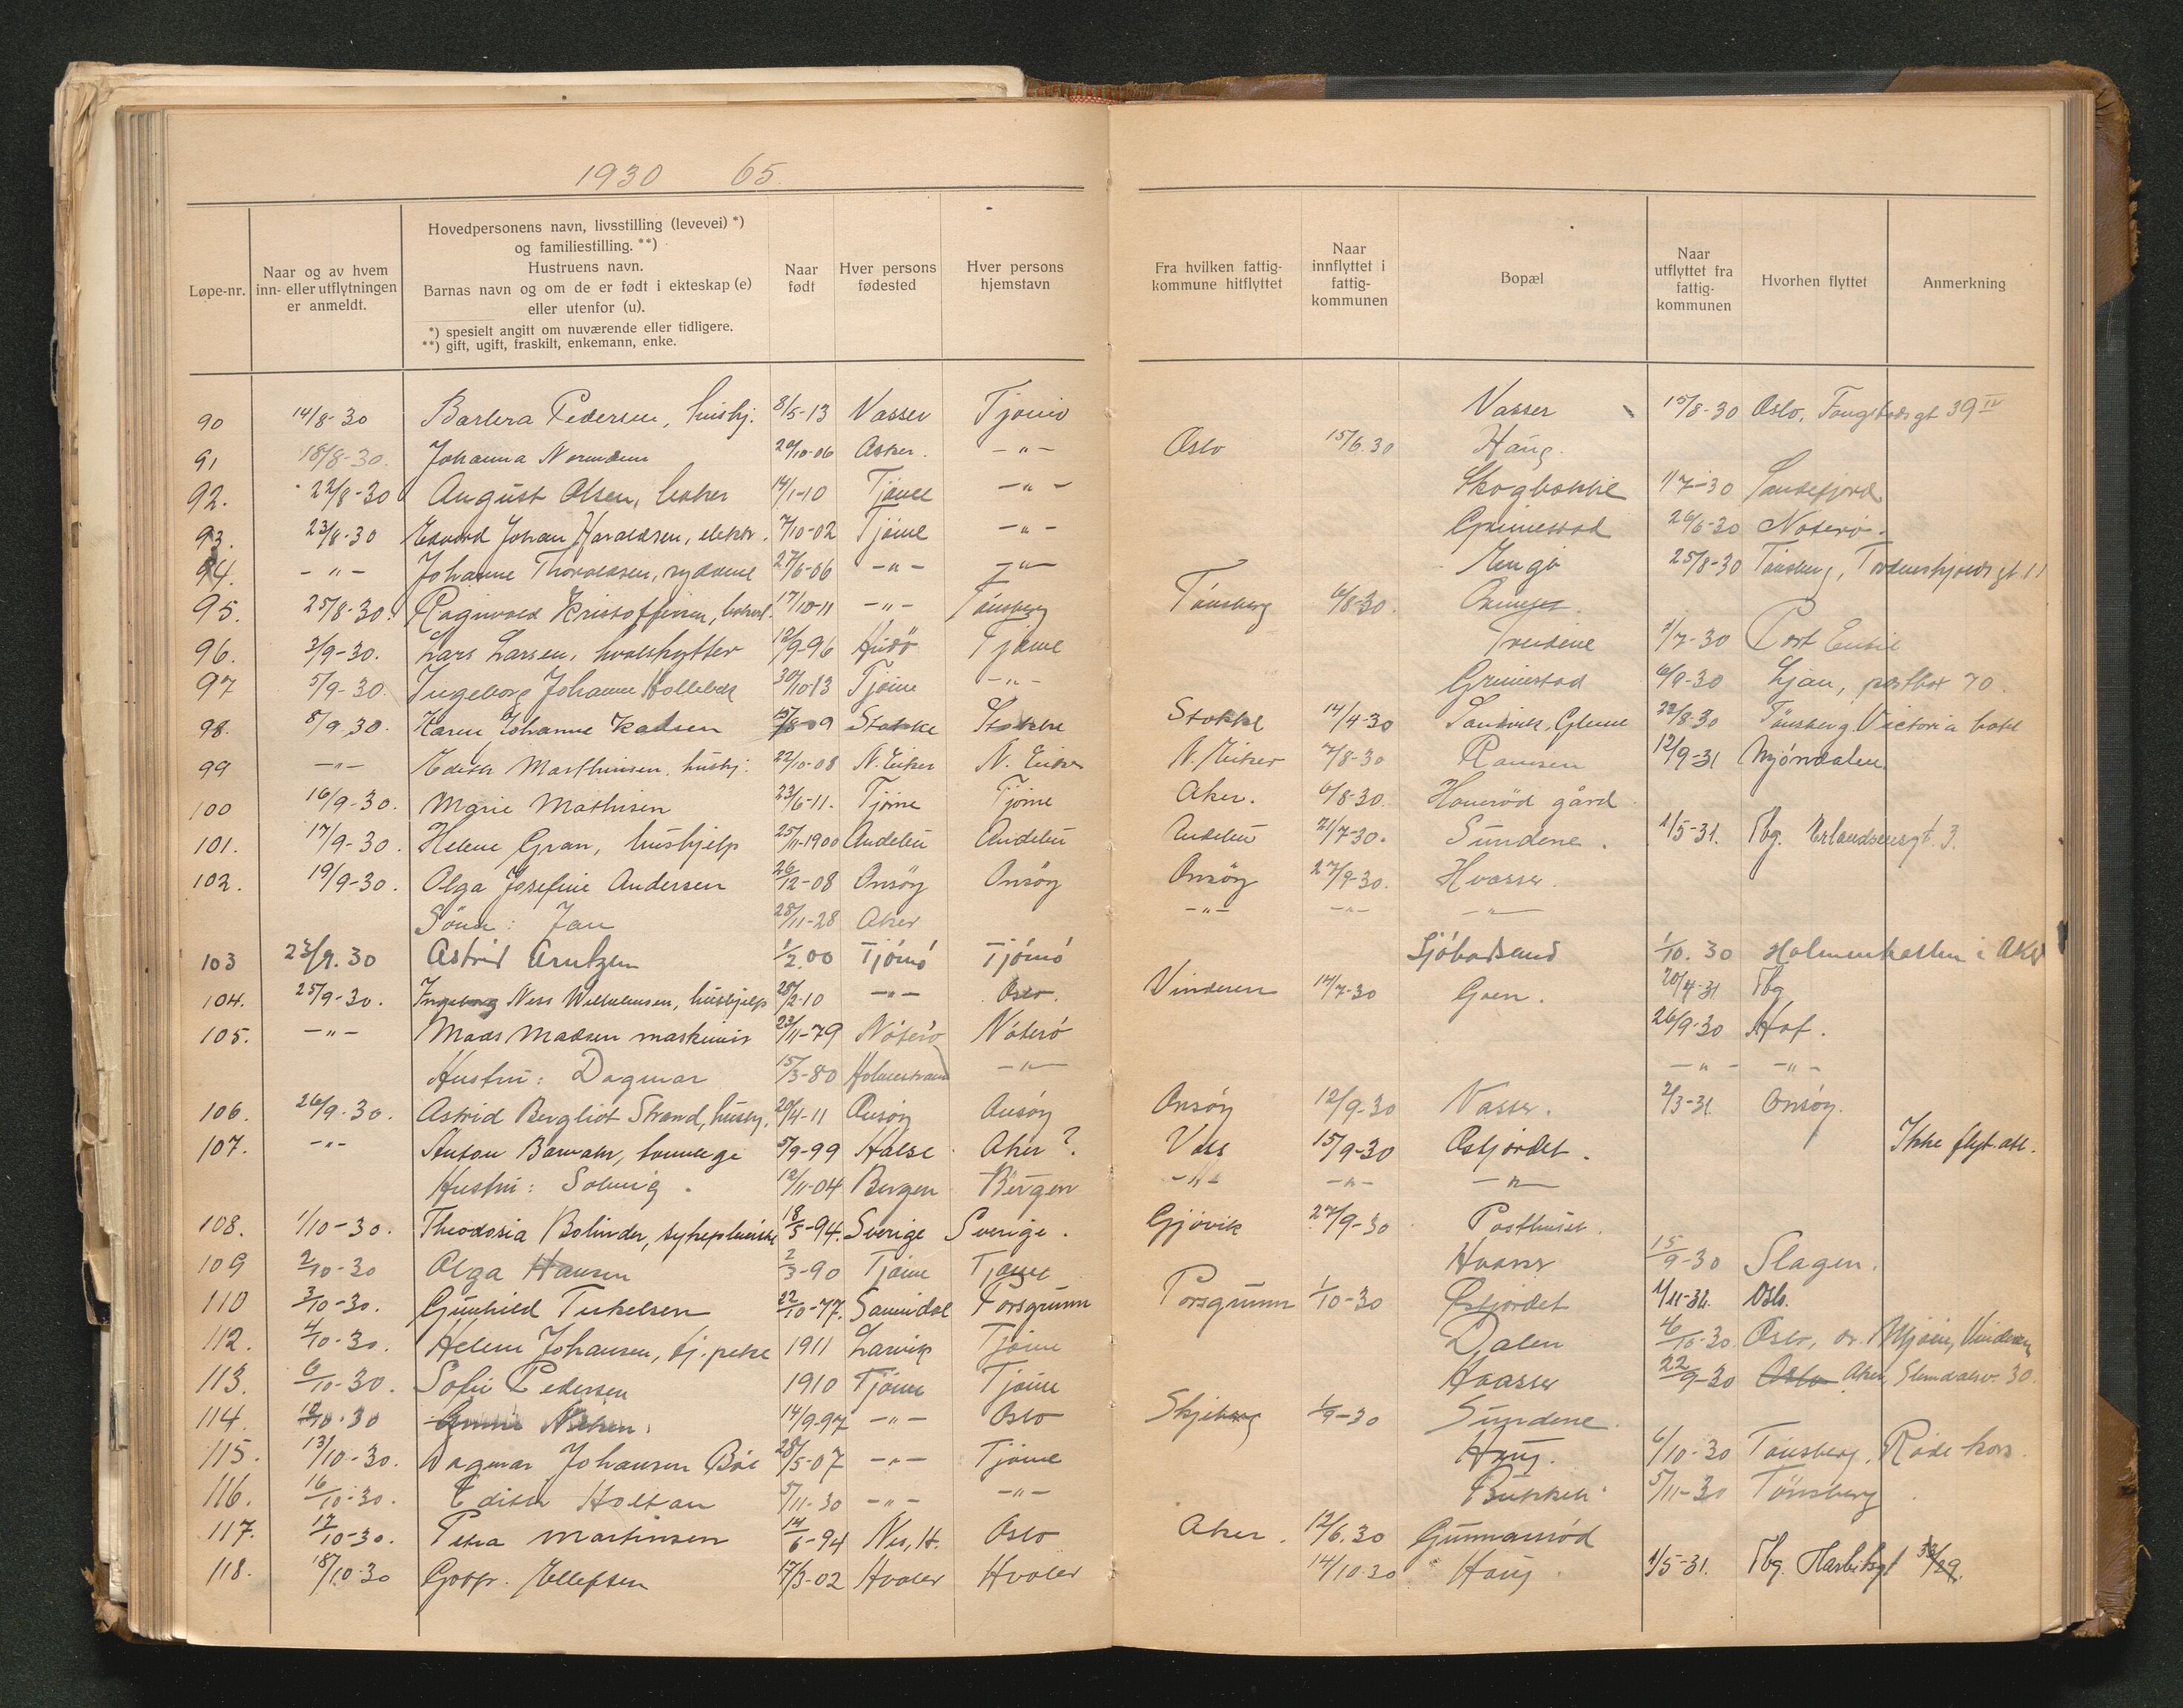 1930 65.
Løpe-nr.
Naar og av hvem
inn- eller utflytningen
er anmeldt.
Hovedpersonens navn, livsstilling (levevei) *)
og familiestilling. **)
Hustruens navn.
Barnas navn og om de er født i ekteskap (e)
eller utenfor (u).
*) spesielt angitt om nuværende eller tidligere.
**) gift, ugift, fraskilt, enkemann, enke.
Naar
født
Hver persons
fødested
Hver persons
hjemstavn
Fra hvilken fattig-
kommune hitflyttet
Naar
innflyttet i
fattig-
kommunen
Bopæl
Naar
utflyttet fra
fattig-
kommunen
Hvorhen flyttet
Anmerkning
90 14/8-30 Pedersen, hushj. 8/5-13 Vasser Tjømø Vasser 15/8-30 Oslo, 39 IV
91 18/8-30. Johanna 20/10-06 Asker. -"- Oslo 15/6.30 Haug.
92. 22/8-30 August Olsen, baker 14/1-10 Tjøme -"- 1/7-30 Sandefjord.
93. 23/8-30 Edvard Johan Haraldsen, elektr. 7/10-02 Tjøme -"- Grimestad 26/6-30 Nøterø.
94. -"- Johanne Thorvaldsen, 27/6-06 -"- -"- Engø 25/8-30 Tønsberg, Tordenskjolds gt 11
95. 25/8-30. Ragnvald Kristoffersen, 17/10-11 -"- Tønsberg Tønsberg 6/8-30.
96. 3/9-30. Lars Larsen, hvalskytter 12/9-96 Hvidø Tjøme 2/7-30 Port
97 5/9-30. Ingeborg Johanne Holleback 30/10 13 Tjøme -"- Grimestad 6/9-30 Ljan, postbox 70.
98. 8/9.30. Karen Johanne 09 Stokke Stokke Stokke 14/4-30 Sandvik, Glenne 22/8-30 Tønsberg Victoria hotel
99 -"- Edith Marthinsen, hushj. 22/10-08 N. Eiker N. Eiker N. Eiker 7/8-30 12/9-31 Mjøndalen.
100 16/9-30. Marie Mathisen 23/6-11. Tjøme Tjøme Aker. 6/8-30. gård
101. 17/9-30. Helene Gran, hushjelp 25/11-1900 Andebu Andebu Andebu 21/7-30. Sundene. 1/5-31. Tbg. Erlandsensgt. 3.
102. 19/9-30. Olga Josefine Andersen 26/12-08 Onsøy Onsøy Onsøy 27/9-30. Hvasser.
Sønn: Jan 28/11-28 Aker -"- -"- -"-
103 23/9.30 Astrid Arntzen 1/2.00 Tjømø Tjømø 1/10.30 Holmenkollen i Aker
104. 25/9-30. Ingeborg Ness Wilhelmsen, hushjelp 28/2-10 -"- Oslo. Vinderen 14/7-30 Goen. 20/4-31 Tbg
105. -"- Mads Madsen maskinist 23/11-79 Nøterø Nøterø 26/9-30 Hof.
Hustru: Dagmar 15/3-80 Holmestrand -"- -"- -"-
106. 26/9-30. Astrid Bergliot Strand, hushj. 20/4-11 Onsøy Onsøy Onsøy 12/9-30 Vasser. 2/3-31. Onsøy.
107. -"- Anton tannlege 5/9-99 Halse Aker? Voss 15/9-30 Østjordet. Ikke flyt. att.
Hustru: Solveig. 12/11-04 Bergen Bergen -"- -"- -"-
108. 1/10-30. Theodosia Bolinder, sykepleierske 18/5-94. Sverige Sverige. Gjøvik 27/9-30 Posthuset.
109 2/10-30 Olga Hansen 2/3-90 Tjøme Tjøme Hvasser 15/9-30 Slagen.
110 3/10-30. Gunhild Terkelsen 22/10-77. Porsgrunn Porsgrunn 1/10-30 Østjordet Oslo.
112. 4/10-30. Helene Johansen, tj. pike 1911 Larvik Tjøme Dalen 4/10-30 Oslo, dr. Mjøen, Vinderen
113. 6/10-30. Sofie Pedersen 1910 Tjøme Tjøme Hvasser 22/9-30 Oslo Aker, Slemdalsv. 30.
114. 10-30 Nilsen. 14/9-97 -"- Oslo Skjeberg 1/9-30 Sundene.
115. 13/10-30. Dagmar Johansen Bøe 28/5-07 -"- Tjøme Haug. 6/10-30 Tønsberg, Røde kors.
116. 16/10-30. Edith Holtan 5/11-30 -"- -"- 5/11-30 Tønsberg
117. 17/10-30. Petra Martinsen 14/6-94 Nes, H. Oslo Aker. 12/6.30 Gunnarsrød
118. 18/10-30 Ellefsen 17/3-02 Hvaler Hvaler 14/10.30 Haug. 1/5-31. Tbg.